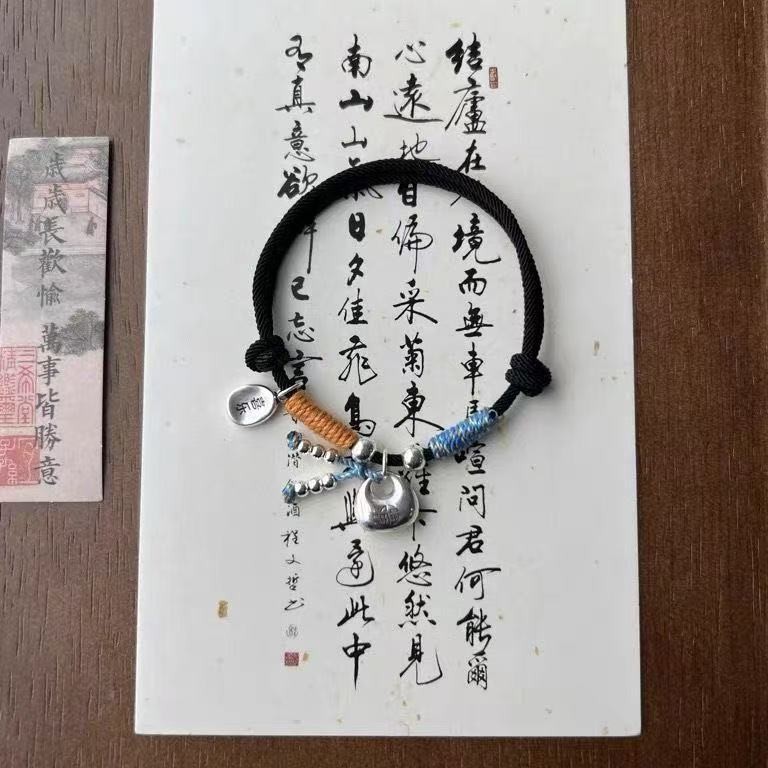 结廬在人境而無車馬喧問君何能爾
心遠地自偏采菊東籬下悠然見
南山山氣日夕佳飛鳥與還此中
有真意欲辨已忘言
潛飲酒程文哲书
歲歲長歡愉
萬事皆勝意
三希堂精鑑璽
宜子孫
喜乐